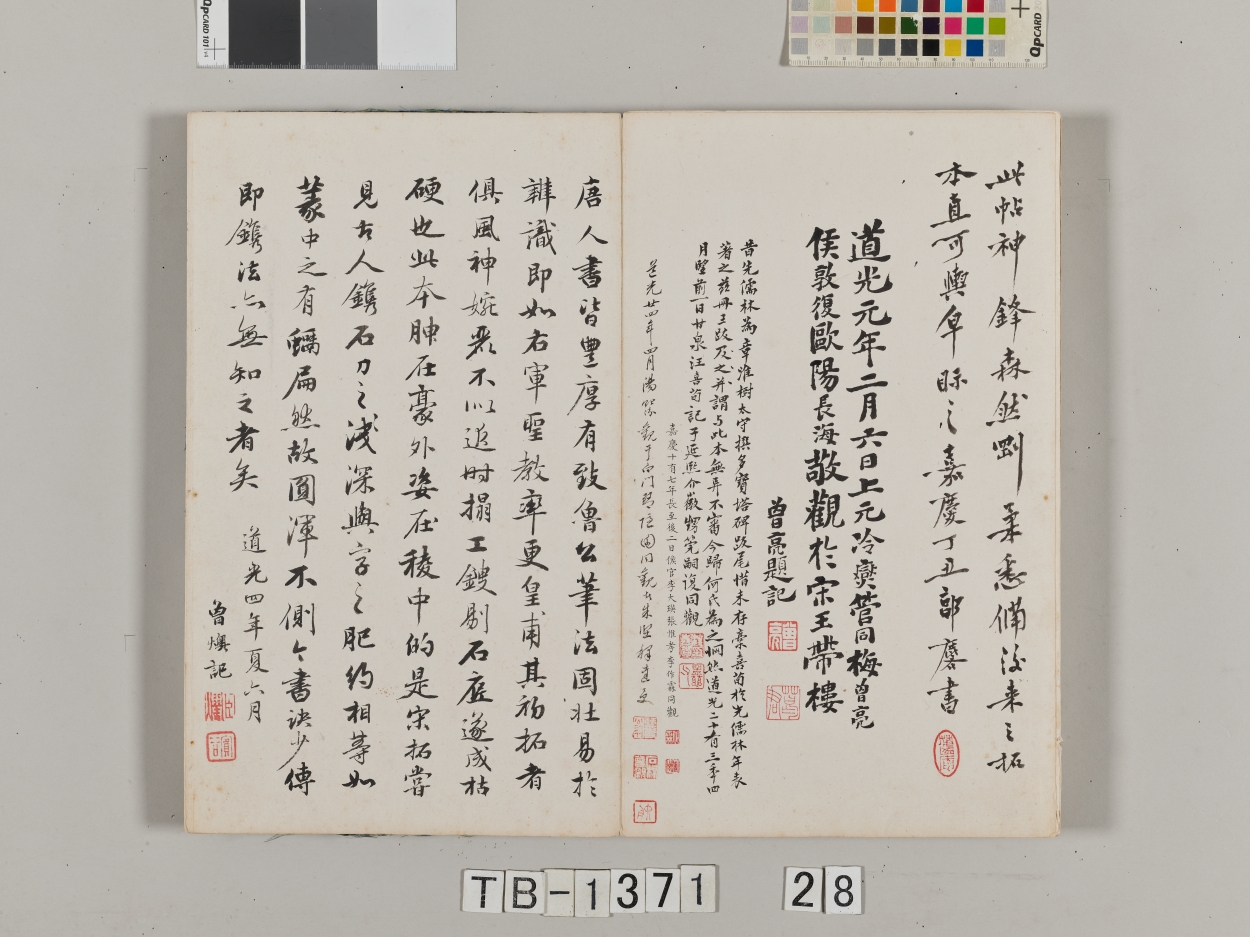 此帖神鋒森然劚柔悉備後來之拓
本真可輿皁眎之嘉慶丁丑部慶書
道光元年二月六日上元冷爕管同梅曾亮
侯敦復歐陽長海敬觀於宋玉帶樓
曾亮題記
昔先儒林為章淮樹太守撰多寶塔碑跋尾惜未存稾喜荀於先儒林年表
著之茲冊王跋及之并謂与此本無弄不審今歸何氏為之惘然道光二十有三年四
月朢前一日甘泉汪喜荀記于延熙介
嘉慶十有七年長至後二日侯官李大瑛張惟
道光廿四年四月湯
唐人書皆豐厚有致魯公筆法固壯易於
辨識即如右軍聖教率更皇甫其初拓者
俱風神婉麗不似近时搨工鎪剔石底遂成枯
硬也此本腴在豪外姿在稜中的是宋拓嘗
見古人鐫石刀之淺深與字之肥約相等如
篆中之有蠣扁然故圓渾不側今書訣少傳
即鐫法亦無知之者矣
道光四年夏六月
曾燠記
QPCARD 101 v4
QPCARD
TB-1371 28